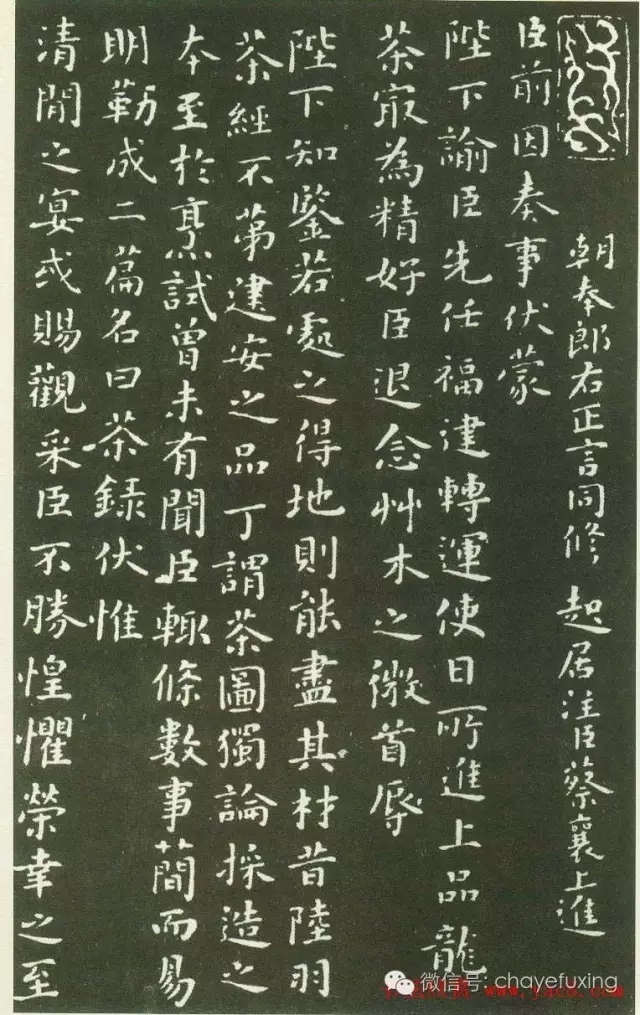 朝奉郎右正言同修起居注臣蔡襄上進
臣前因奏事伏蒙
陛下諭臣先任福建轉運使日所進上品龍
茶㝡為精好臣退念艸木之微首辱
陛下知鑒若處之得地則能盡其材昔陸羽
茶經不第建安之品丁謂茶圖獨論採造之
本至於烹試曾未有聞臣輒條數事簡而易
明勒成二篇名曰茶錄伏惟
清閒之宴或賜觀采臣不勝惶懼榮幸之至
微信号: chayefuxing